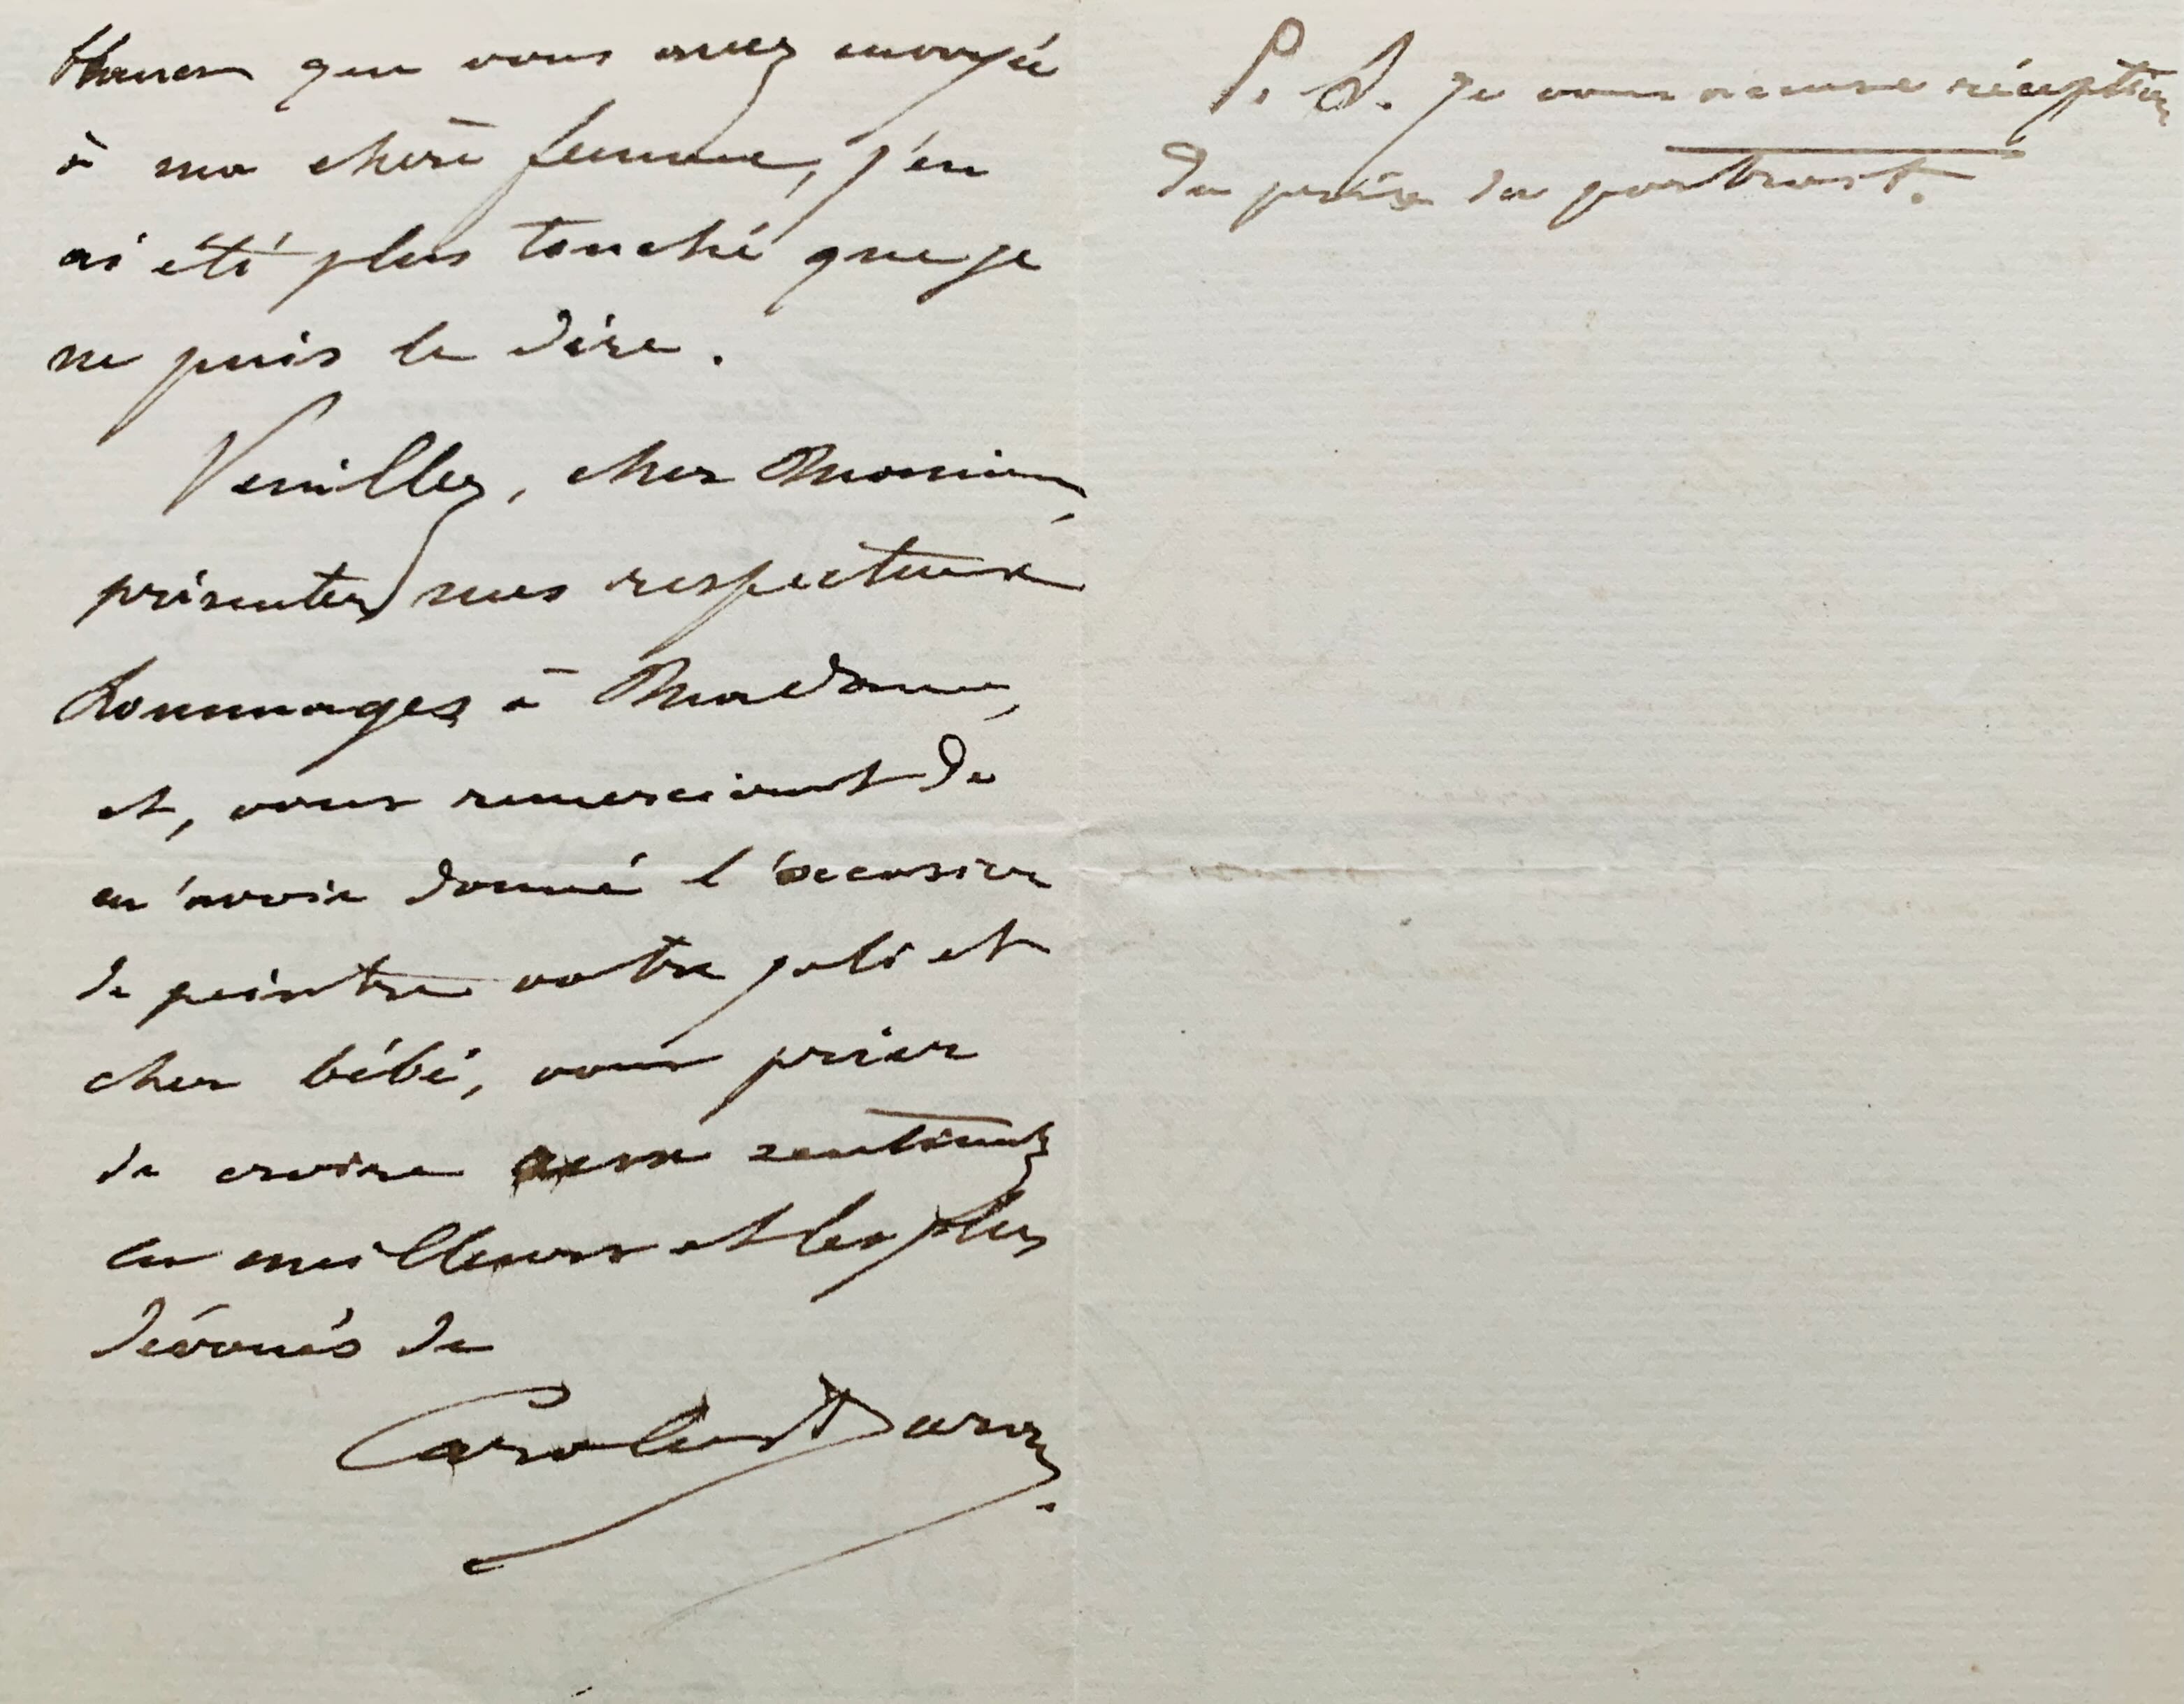 que vous avez envoyée
à ma chère femme, j'en
ai été plus touché que je
ne puis le dire.
Veuillez, cher Monsieur,
présenter mes respectueux
hommages à Madame,
et, vous remerciant de
m'avoir donné l'occasion
de peindre votre joli et
cher bébé, vous prier
de croire aux sentiments
les meilleurs et les plus
dévoués de
Carolus Duran.
P. S. Je vous accuse réception
du prix du portrait.